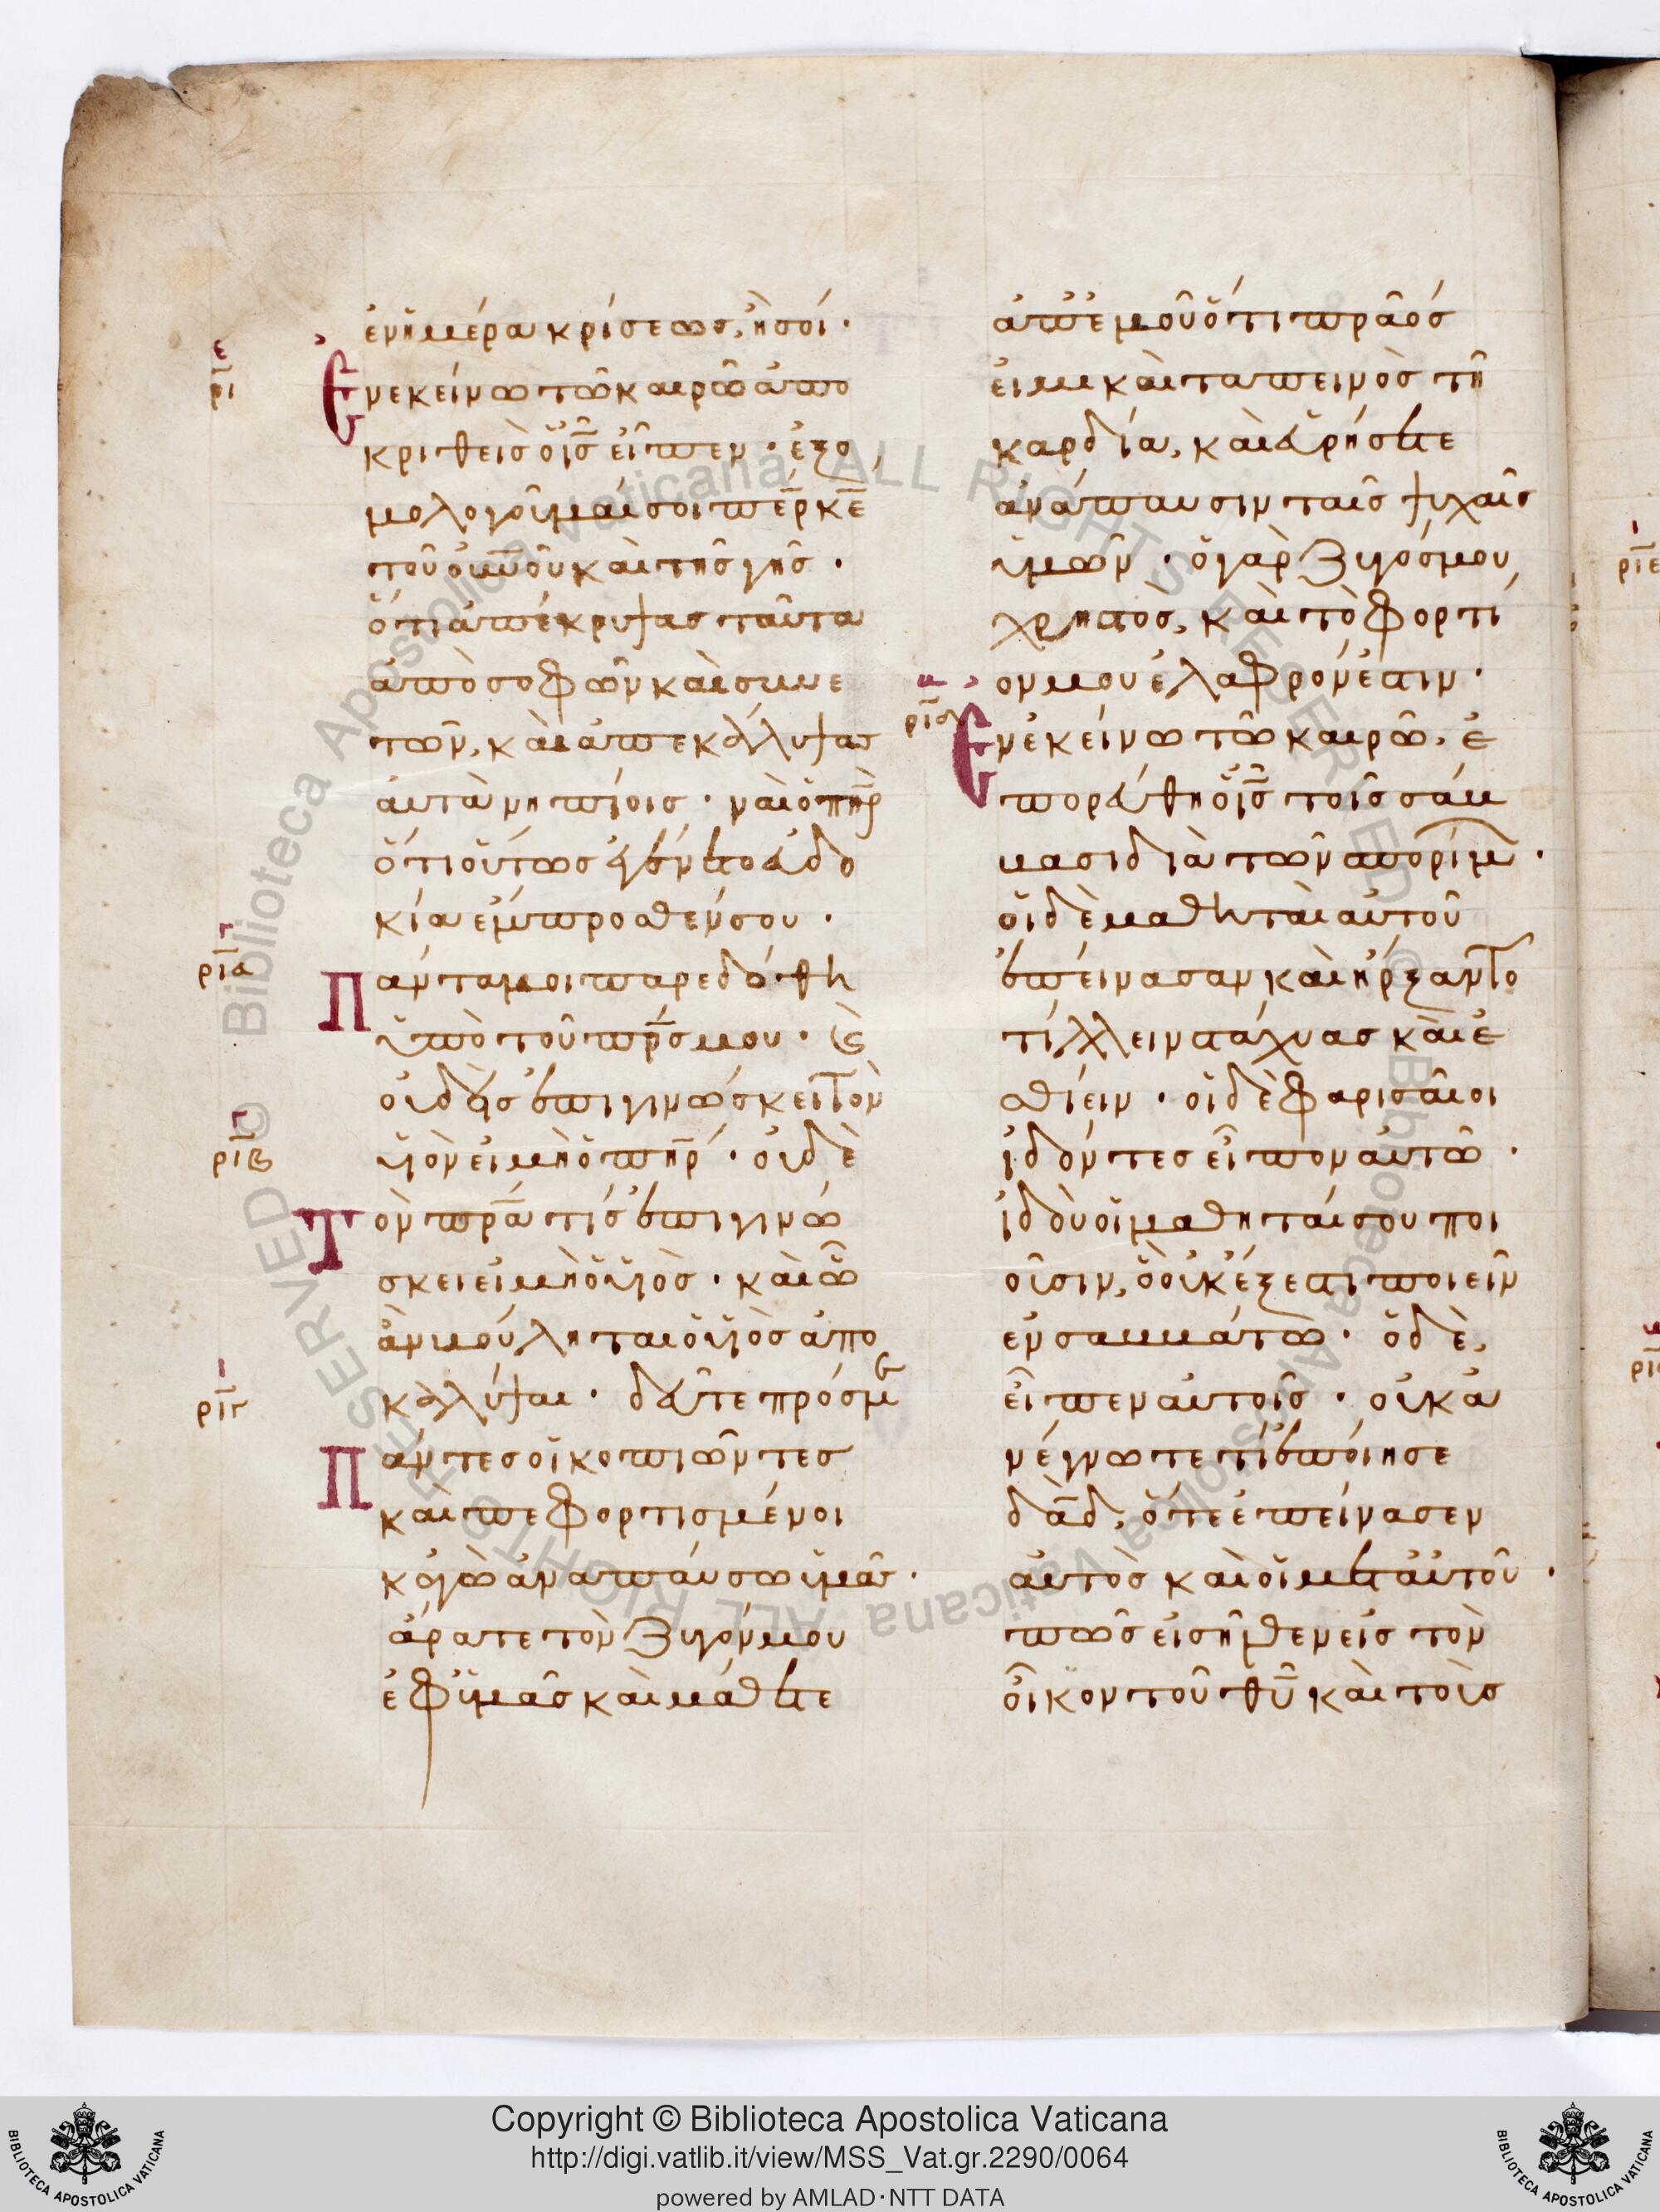 ἐνἡμέρα κρίσεως, ἠσοί·
ε
ρι
Ενεκείνω τῶ καιρῶ ἀπο
κριθεὶς ὁις εἶπεν· ἐξο
μολογοῦμαί σοι περ κε
τοῦ οὐνου καὶ τῆς γῆς·
ὅτι ἀπέκρυψας ταῦτα
ἀπὸ σοφῶν καὶ συνε
τῶν, καὶ ἀπεκάλυψας
αὐτὰ νηπίοις· ναὶ ὁ πηρ
ὅτι οὕτως ἐγένετο εὐδο
κία ἔμπροσθέν σου·
γ
ρια
Πάντα μοι παρεδόθη
ὑπὸ τοῦ πρς μου· καὶ
οὐδεὶς ἐπιγινώσκει τὸν
γ
ριβ
υἱὸν εἰ μὴ ὁ πηρ· οὐδὲ
Τὸν πρα τίς ἐπιγινώ
σκει εἰ μὴ ὁ υἱὸς· καὶ ᾧ
ἂν βούληται ὁ υἱὸς ἀπο
ι
ριγ
καλύψαι· δεῦτε πρός με
Πάντες οἱ κοπιῶντες
καὶ πεφορτισμένοι
κἀγὼ ἀναπαύσω ὑμᾶς·
ἄρατε τὸν ζυγόν μου
ἐφ ὑμᾶς καὶ μάθετε
ἀπ ἐμοῦ ὅτι πρᾶός
εἰμι καὶ ταπεινὸς τῆ
καρδία, καὶ εὑρήσετε
ἀνάπαυσιν ταῖς ψυχαῖς
ὑμῶν· ὁ γὰρ ζυγός μου
χρηστὸς, καὶ τὸ φορτί
ον μου ἐλαφρόν ἐστιν·
β
ριδ
Ενἐκείνω τῶ καιρῶ, ἐ
πορεύθη ὁ ις τοῖς σάβ
βασι διὰ τῶν σπορίμων·
οἱ δὲ μαθηταὶ αὐτοῦ
ἐπείνασαν καὶ ἤρξαντο
τίλλειν στάχυας καὶ ἐ
σθίειν· οἱ δὲ φαρισαῖοι
ἰδόντες εἶπον αὐτῶ·
ἰδοὺ οἱ μαθηταί σου ποι
οῦσιν, ὃ οὐκ ἔξεστι ποιεῖν
ἐν σαββάτω· ὁ δὲ,
εἶπεν αὐτοῖς· οὐκ ἀ
νέγνωτε τί ἐποίησε
δαδ, ὅτε ἐπείνασεν
αὐτὸς καὶ οἱ μετ αὐτοῦ·
πῶς εἰσῆλθεν εἰς τὸν
οἶκον τοῦ θυ καὶ τοὺς
ριε
Copyright © Biblioteca Apostolica Vaticana
http://digi.vatlib.it/view/MSS_Vat.gr.2290/0064
powered by AMLAD·NTT DATA
BIBLIOTECA APOSTOLICA VATICANA
BIBLIOTECA APOSTOLICA VATICANA
© Biblioteca Apostolica Vaticana ALL RIGHTS RESERVED © Biblioteca Apostolica Vaticana ALL RIGHTS RESERVED